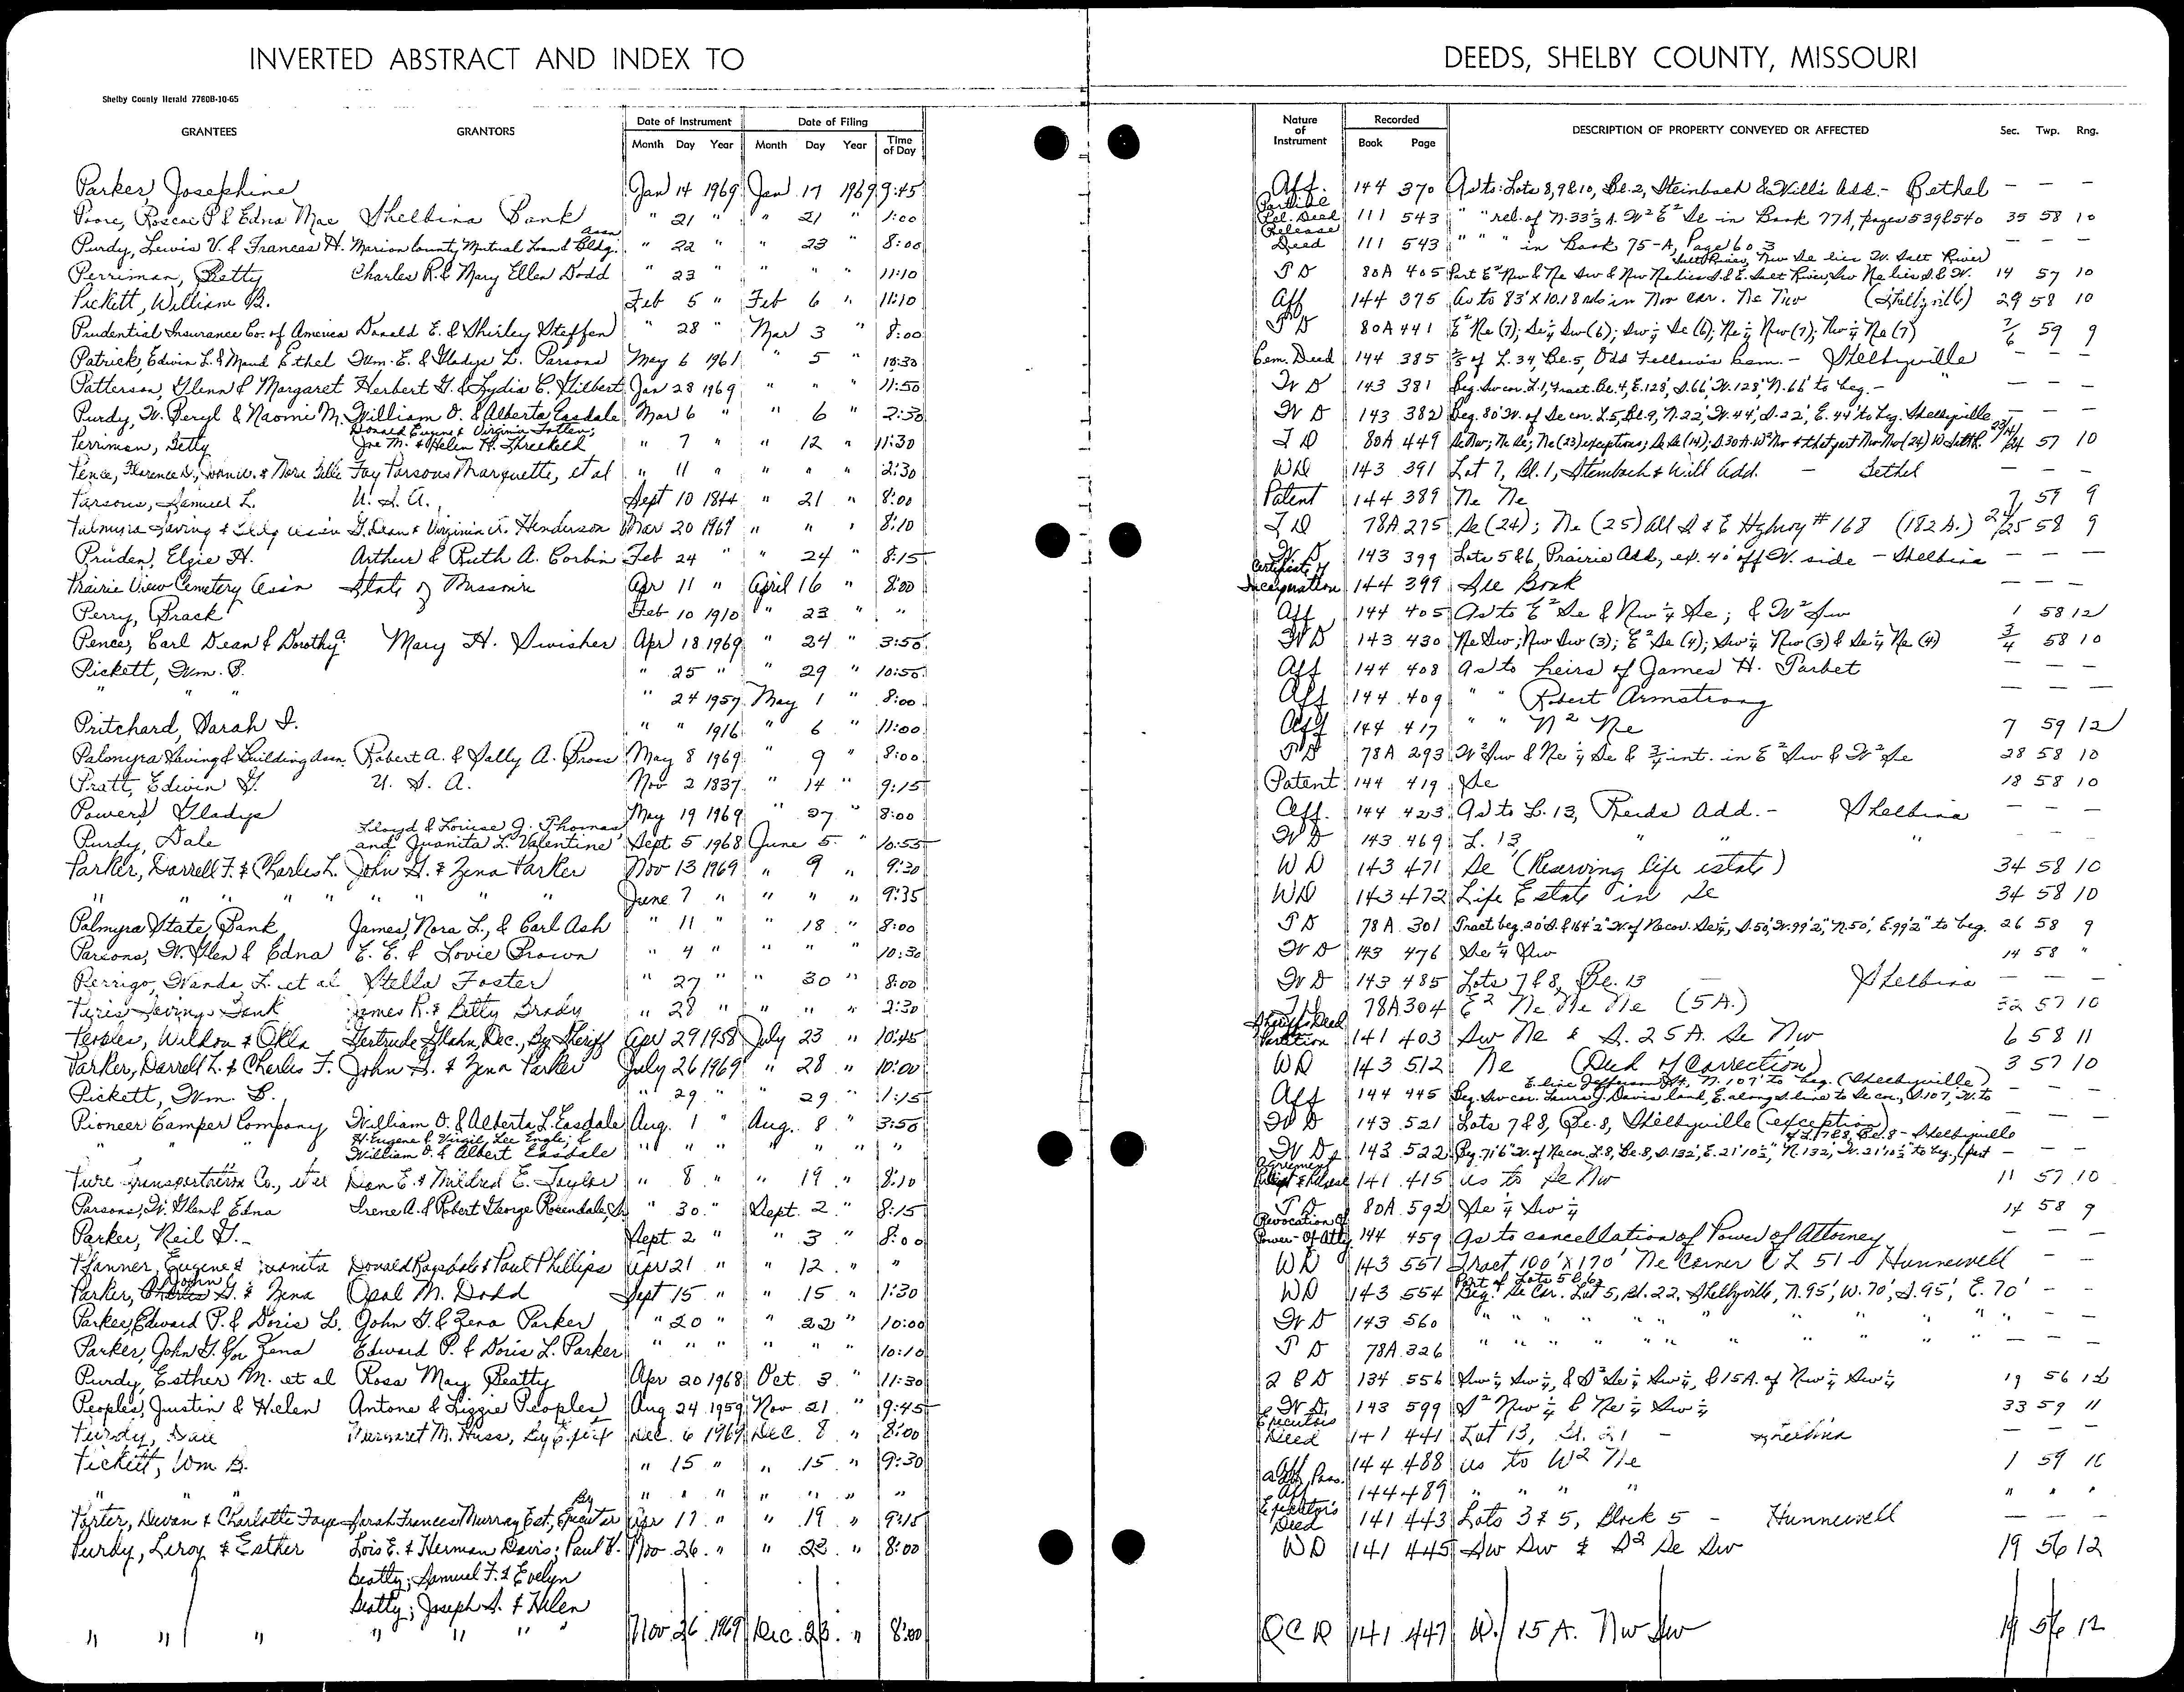 INVERTED ABSTRACT AND INDEX TO DEEDS, SHELBY COUNTY, MISSOURI
Shelby County Herald 7760B-10-65
GRANTEES GRANTORS Date of Instrument Month Day Year Date of Filing Month Day Year Time of Day Nature of Instrument Recorded Book Page DESCRIPTION OF PROPERTY CONVEYED OR AFFECTED Sec. Twp. Rng.
Parker, Josephine Jan 14 1969 Jan 17 1969 9:45 Aff. 144 370 As to: Lots 8, 9 & 10, Bl. 2, Steinbach & Will's Add. - Bethel — — —
Poore, Roscoe P & Edna Mae Shelbina Bank " 21 " " 21 " 1:00 Partial Rel. Deed 111 543 " " rel. of N. 33 1/3 A. W² E² Se in Book 77A, pages 539 & 540 35 58 10
Purdy, Lewis V. & Frances H. Marion County Mutual Loan & Bldg. Assn " 22 " " 23 " 8:00 Release Deed 111 543 " " " in Book 75-A, Page 603 — — —
Perriman, Betty Charles R. & Mary Ellen Dodd " 23 " " " 11:10 T D 80A 405 Part E² Nw & Ne Sw & Nw Ne lies S. & E. Salt River, Sw Ne lies S. & W. Salt River, Nw Se lies W. Salt River 14 57 10
Pickett, William B. Feb 5 " Feb 6 " 11:10 Aff 144 375 As to 83' X 10.18 rds in Nw cor. Ne Nw (Shelbyville) 29 58 10
Prudential Insurance Co. of America Donald E. & Shirley Steffen " 28 " Mar 3 " 8:00 T D 80A 441 E² Ne (7); Se ¼ Sw (6); Sw ¼ Se (6); Ne ¼ Nw (7); Nw ¼ Ne (7) 7/6 59 9
Patrick, Edwin L. & Maud Ethel Wm. E. & Gladys L. Parsons May 6 1961 " 5 " 10:30 Cem. Deed 144 385 of L. 34, Bl. 5, Odd Fellows Cem. - Shelbyville — — —
Patterson, Glenn & Margaret Herbert G. & Lydia C. Gilbert Jan 28 1969 " " " 11:50 W D 143 381 Beg. Sw cor. L. 1, Tract Bl. 4, E. 128', S. 66', W. 128', N. 66' to beg. - " — — —
Purdy, W. Beryl & Naomi M. William O. & Alberta Easdale Mar 6 " " 6 " 2:30 W D 143 382 Beg. 80' W. of Se cor. L. 5, Bl. 9, N. 22', W. 44', S. 22', E. 44' to beg. Shelbyville — — —
Perriman, Betty Donald Eugene & Virginia Totten; Joe M. & Helen H. Threlkeld " 7 " " 12 " 11:30 T D 80A 449 Se Nw; Ne Se; Ne (23) exceptions; Se Se (14); S 30 A. W² Nw & that part Nw Nw (24) W 57 10
Pence, Florence S., & Nora Belle Fay Parsons Marquette, et al " 11 " " " " 2:30 WD 143 391 Lot 7, Bl. 1, Steinbach & Will Add. - Bethel — — —
Parsons, Samuel L. U. S. A. Sept 10 1844 " 21 " 8:00 Patent 144 389 Ne Ne 7 59 9
Palmyra Saving & Bldg Ass'n G. Dean & Virginia A. Henderson Mar 20 1969 " " " 8:10 T D 78A 275 Se (24); Ne (25) All S & E Highway #168 (182 A.) 24/25 58 9
Pruden, Elgie H. Arthur & Ruth A. Corbin Feb 24 " " 24 " 8:15 W D 143 399 Lots 5 & 6, Prairie Add, ex. 40' off W. side - Shelbina — — —
Prairie View Cemetery Ass'n State of Missouri Apr 11 " April 16 " 8:00 Certificate of Incorporation 144 399 See Book — — —
Perry, Brack Feb 10 1910 " 23 " " Aff 144 405 As to E² Se & Nw ¼ Se; & W² Sw 1 58 12
Pence, Carl Dean & Dorothy A. Mary H. Swisher Apr 18 1969 " 24 " 3:50 W D 143 430 Ne Sw; Nw Sw (3); E² Se (4); Sw ¼ Nw (3) & Se ¼ Ne (4) 3/4 58 10
Pickett, Wm. B. " 25 " " 29 " 10:50 Aff 144 408 As to heirs of James H. Tarbet — — —
" " " " 24 1957 May 1 " 8:00 Aff 144 409 " " Robert Armstrong — — —
Pritchard, Sarah I. " " 1916 " 6 " 11:00 Aff 144 417 " " N² Ne 7 59 12
Palmyra Saving & Building Assn. Robert A. & Sally A. Bross May 8 1969 " 9 " 8:00 T D 78A 293 W² Sw & Ne ¼ Se & ¾ int. in E² Sw & W² Se 28 58 10
Pratt, Edwin G. U. S. A. Nov 2 1837 " 14 " 9:15 Patent 144 419 Se 18 58 10
Powers, Gladys May 19 1969 " 27 " 8:00 Aff. 144 423 As to L. 13, Reids Add. - Shelbina — — —
Purdy, Dale Lloyd & Louise J. Thomas and Juanita L. Valentine Sept 5 1968 June 5 " 10:55 W D 143 469 L. 13, " " " — — —
Parker, Darrell F. & Charles L. John G. & Zena Parker Nov 13 1969 " 9 " 9:30 WD 143 471 Se (Reserving life estate) 34 58 10
" " " " " " " June 7 " " " " 9:35 WD 143 472 Life Estate in Se 34 58 10
Palmyra State Bank James, Nora L., & Carl Ash " 11 " " 18 " 8:00 T D 78A 301 Tract beg. 20' S. & 164' 2" W. of Ne cor. Se ¼, S. 50', W. 99' 2", N. 50', E. 99' 2" to beg. 26 58 9
Parsons, W. Glen & Edna E. E. & Lovie Brown " 4 " " " " 10:30 W D 143 476 Se ¼ Sw 14 58 "
Perrigo, Wanda L. et al Stella Foster " 27 " " 30 " 8:00 W D 143 485 Lots 7 & 8, Bl. 13 — Shelbina — — —
Paris Savings Bank James R. & Betty Brady " 28 " " " " 2:30 T D 78A 304 E² Ne Ne Ne (5 A.) 32 57 10
Peoples, Wildon & Okla Gertrude Glahn, Dec., By Sheriff Apr 29 1958 July 23 " 10:45 Sheriff's Deed Partition 141 403 Sw Ne & S. 25 A. Se Nw 6 58 11
Parker, Darrell L. & Charles F. John G. & Zena Parker July 26 1969 " 28 " 10:00 WD 143 512 Ne (Deed of Correction) 3 57 10
Pickett, Wm. B. " 29 " " 29 " 1:15 Aff 144 445 Beg. Sw cor. Laura J. Davis land, E. along S. line to Se cor., S. 107', W. to E. line Jefferson St., N. 107' to beg. (Shelbyville) — — —
Pioneer Camper Company William O. & Alberta L. Easdale Aug. 1 " Aug. 8 " 3:50 W D 143 521 Lots 7 & 8, Bl. 8, Shelbyville (exception) — — —
" " " H. Eugene & Virgil Lee Engle; & William O. & Albert Easdale " " " " " " " W D 143 522 Beg. 71' 6" W. of Ne cor. L. 8, Bl. 8, S. 132', E. 21' 10½", N. 132', W. 21' 10½" to beg., part of L. 7 & 8, Bl. 8 - Shelbyville — — —
Pure Transportation Co., et al Dean E. & Mildred E. Taylor " 8 " " 19 " 8:10 Agreement 141 415 as to Se Nw 11 57 10
Parsons, W. Glen & Edna Irene A. & Robert George Rosendale, Sr. " 30 " Sept. 2 " 8:15 T D 80A 592 Se ¼ Sw ¼ 14 58 9
Parker, Neil G. Sept 2 " " 3 " 8:00 Revocation Of Power-Of-Atty 144 459 As to cancellation of Power of Attorney — — —
Pfanner, Eugene & Juanita Donald Ragsdale & Paul Phillips Apr 21 " " 12 " " WD 143 551 Tract 100' X 170' Ne Corner O L 51 - Hunnewell — — —
Parker, John G. & Zena Opal M. Dodd Sept 15 " " 15 " 1:30 WD 143 554 Part of Lots 5 & 6, Beg. Se Cor. Lot 5, Bl. 22, Shelbyville, N. 95', W. 70', S. 95', E. 70' — — —
Parker, Edward P. & Doris L. John G. & Zena Parker " 20 " " 22 " 10:00 W D 143 560 " " " " " " " " " — — —
Parker, John G. &/or Zena Edward P. & Doris L. Parker " " " " " " 10:10 T D 78A 326 " " " " " " " " " — — —
Purdy, Esther M. et al Rosa May Beatty Apr 20 1968 Oct. 3 " 11:30 Q C D 134 556 Sw ¼ Sw ¼, & S² Se ¼ Sw ¼, & 15 A. of Nw ¼ Sw ¼ 19 56 12
Peoples, Justin & Helen Antone & Lizzie Peoples Aug 24 1959 Nov 21 " 9:45 W D. 143 599 S² Nw ¼ & Ne ¼ Sw ¼ 33 59 11
Purdy, Dale Margaret M. Huss, By Dec. 6 1969 Dec. 8 " 8:00 Executors Deed 141 441 Lot 13, Bl. 21 - Shelbina — — —
Pickett, Wm B. " 15 " " 15 " 9:30 Aff 144 488 as to W² Ne 1 59 10
" " " " " " " " " " Aff 144 489 " " " " " " "
Porter, Devan & Charlotte Faye Sarah Frances Murray Est., By Executor Apr 17 " " 19 " 9:15 Executor's Deed 141 443 Lots 3 & 5, Block 5 - Hunnewell — — —
Purdy, Leroy & Esther Lois E. & Herman Davis; Paul H. Beatty; Samuel F. & Evelyn Beatty; Joseph S. & Helen Nov. 26 " " 23 " 8:00 WD 141 445 Sw Sw & S² Se Sw 19 56 12
" " " " " " " Nov 26 1969 Dec. 23 " 8:00 Q C D 141 447 W. 15 A. Nw Sw 19 56 12